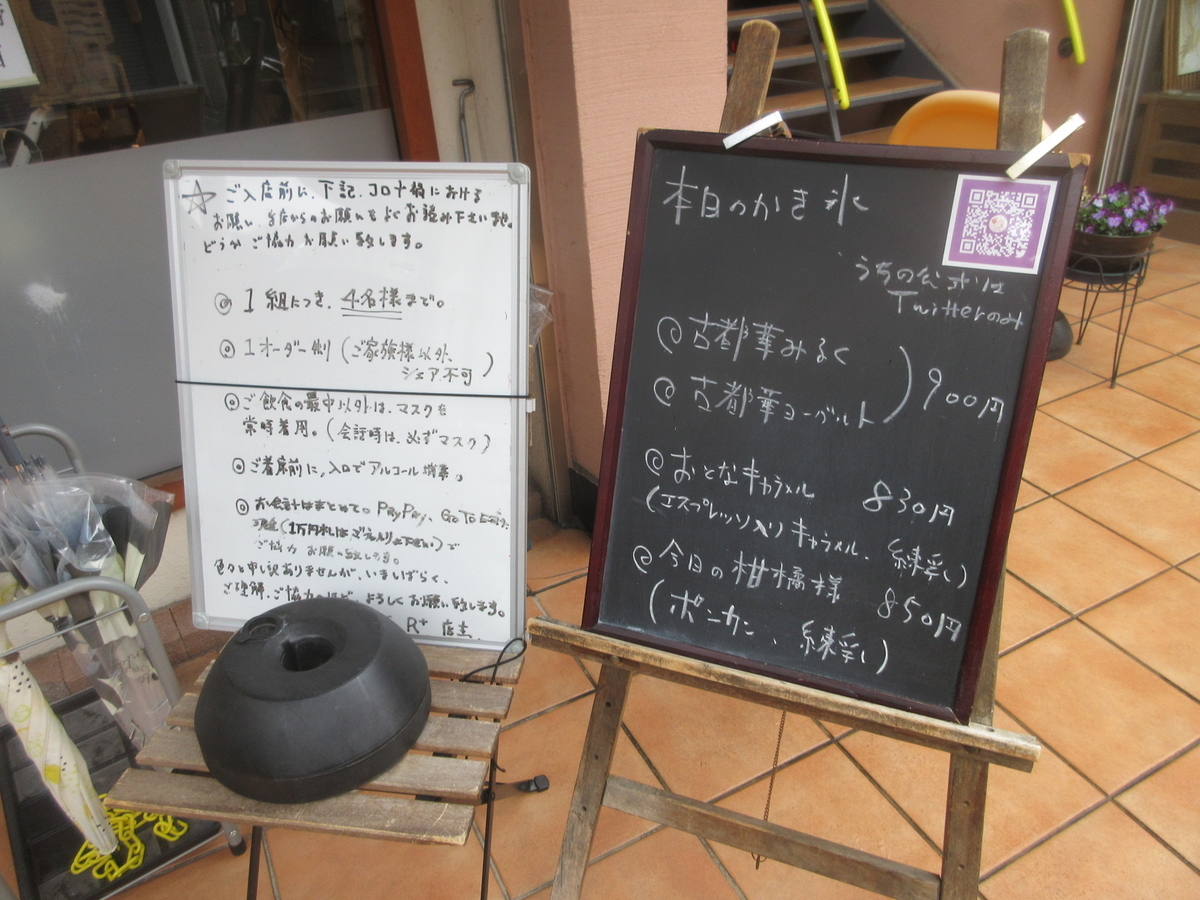 ☆ ご入店前に、下記、コロナ禍における
お願い、当店からのお願いをよくお読み下さい
どうかご協力お願い致します。
◎ 1組につき、4名様まで。
◎ 1オーダー制(ご家族様以外、
シェア不可)
◎ ご飲食の最中以外は、マスクを
常時着用。(会話時は、必ずマスク)
◎ ご着席前に、入口でアルコール消毒。
◎ お会計はまとめて。PayPay、Go To
(1万円札は
ご協力 お願い致します。
色々と申し訳ありませんが、いましばらく、
ご理解、ご協力のほど、よろしくお願い致します。
R+ 店主
本日のかき氷
うちの公式は
Twitterのみ
◎ 古都華みるく
◎ 古都華ヨーグルト
900円
◎ おとなキャラメル 830円
(エスプレッソ入りキャラメル、練乳)
◎ 今日の柑橘様 850円
(ポンカン、練乳)